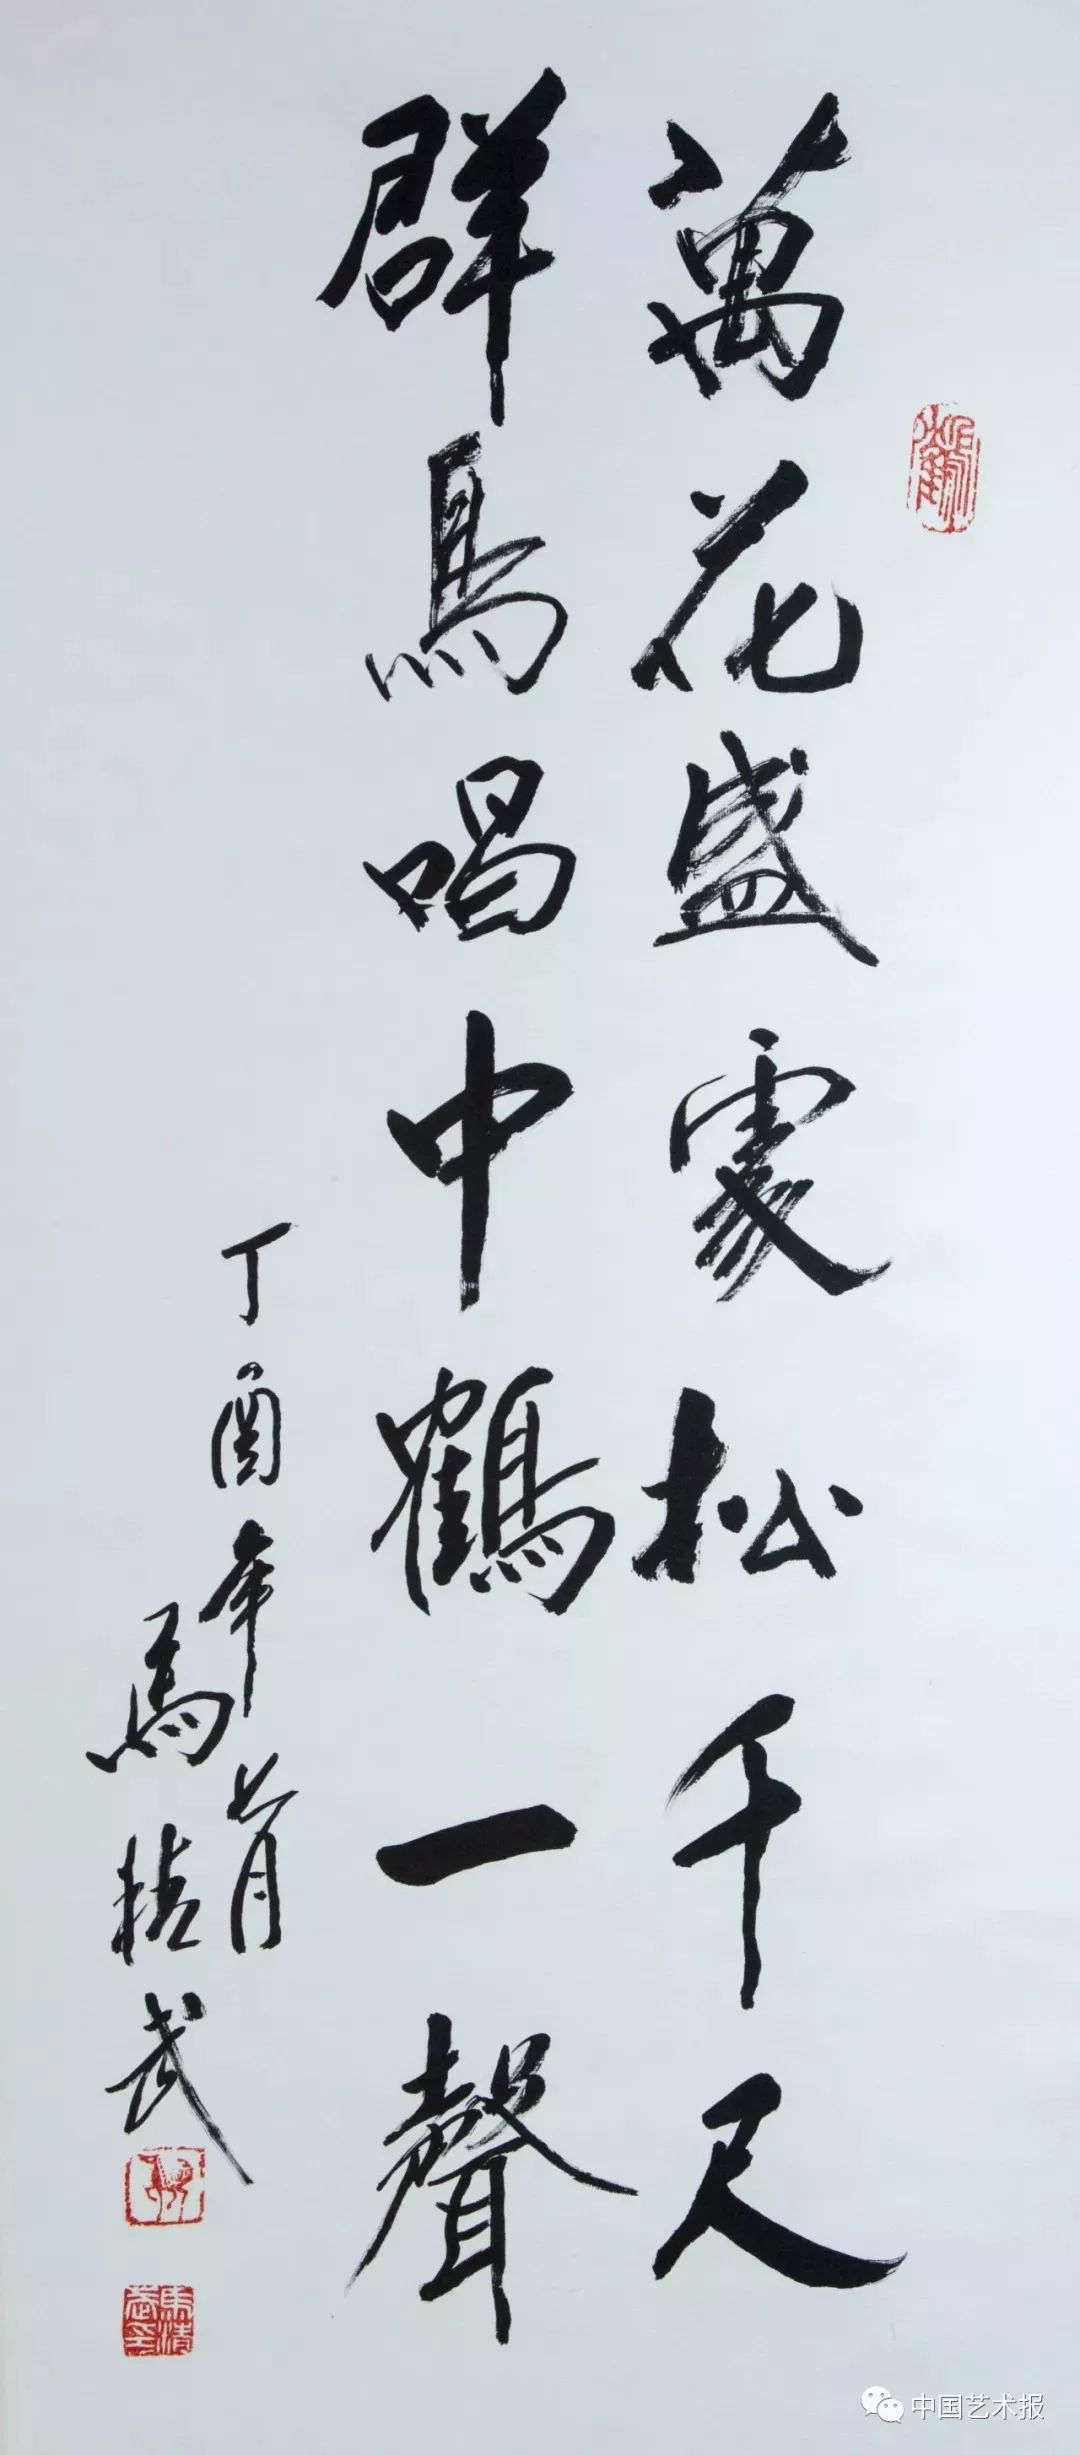 萬花盛處松千尺
群鳥唱中鶴一聲
丁酉年月
馬精武
馬精武印
中国艺术报